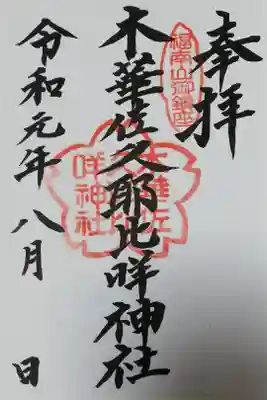 奉拝
福南山御鎮座
木華佐久耶比咩神社
木華佐久耶比咩神社
令和元年八月 日